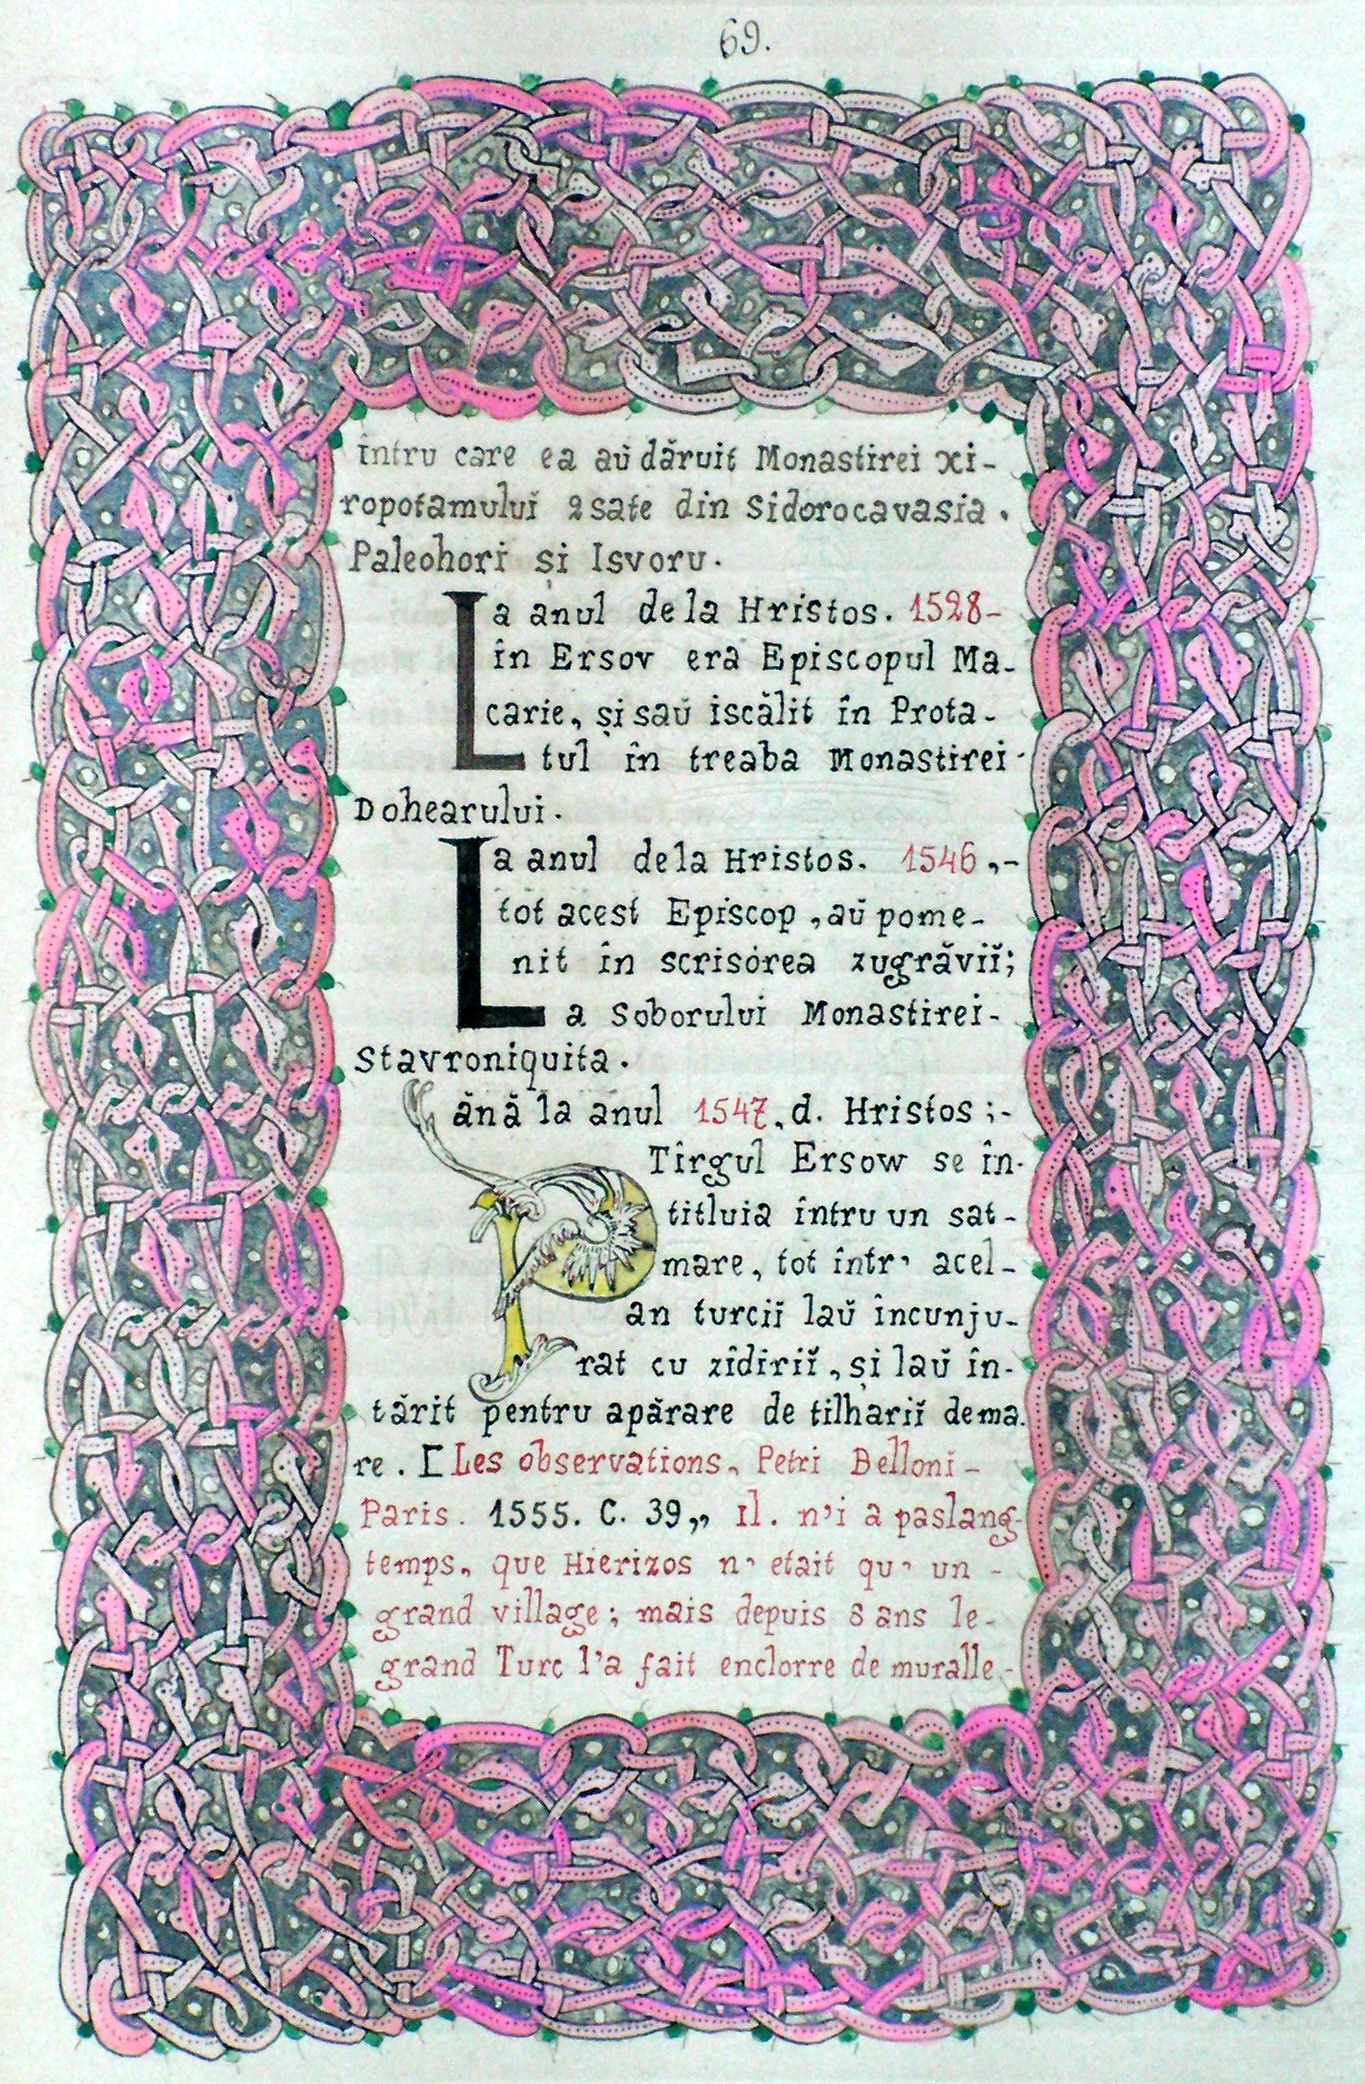 69.
întru care ea aŭ dăruit Monastirei Xi-
ropotamuluĭ 2 sate din Sidorocavasia.
Paleohori și Isvoru.
La anul de la Hristos. 1528-
în Ersov era Episcopul Ma-
carie, și saŭ iscălit în Prota-
tul în treaba Monastirei
Dohearului.
La anul de la Hristos. 1546,-
tot acest Episcop, aŭ pome-
nit în scrisórea zugrăviĭ;
a Soborului Monastirei-
Stavroniquita.
Pănă la anul 1547, d. Hristos ;-
Tîrgul Ersow se în-
titluia întru un sat-
mare, tot într' acel-
an turciĭ laŭ încunju-
rat cu zîdiriĭ, și laŭ în-
tărit pentru apărare de tilhariĭ dema-
re. [Les observations, Petri Belloni-
Paris. 1555. C. 39,,, Il. n'i a paslang-
temps, que Hierizos n' etait qu' un -
grand village; mais depuis 8 ans le-
grand Turc l'a fait enclorre de muralle-